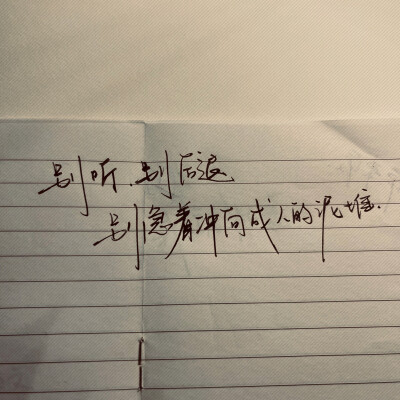 别听、别后退
别急着冲向成人的泥堆.